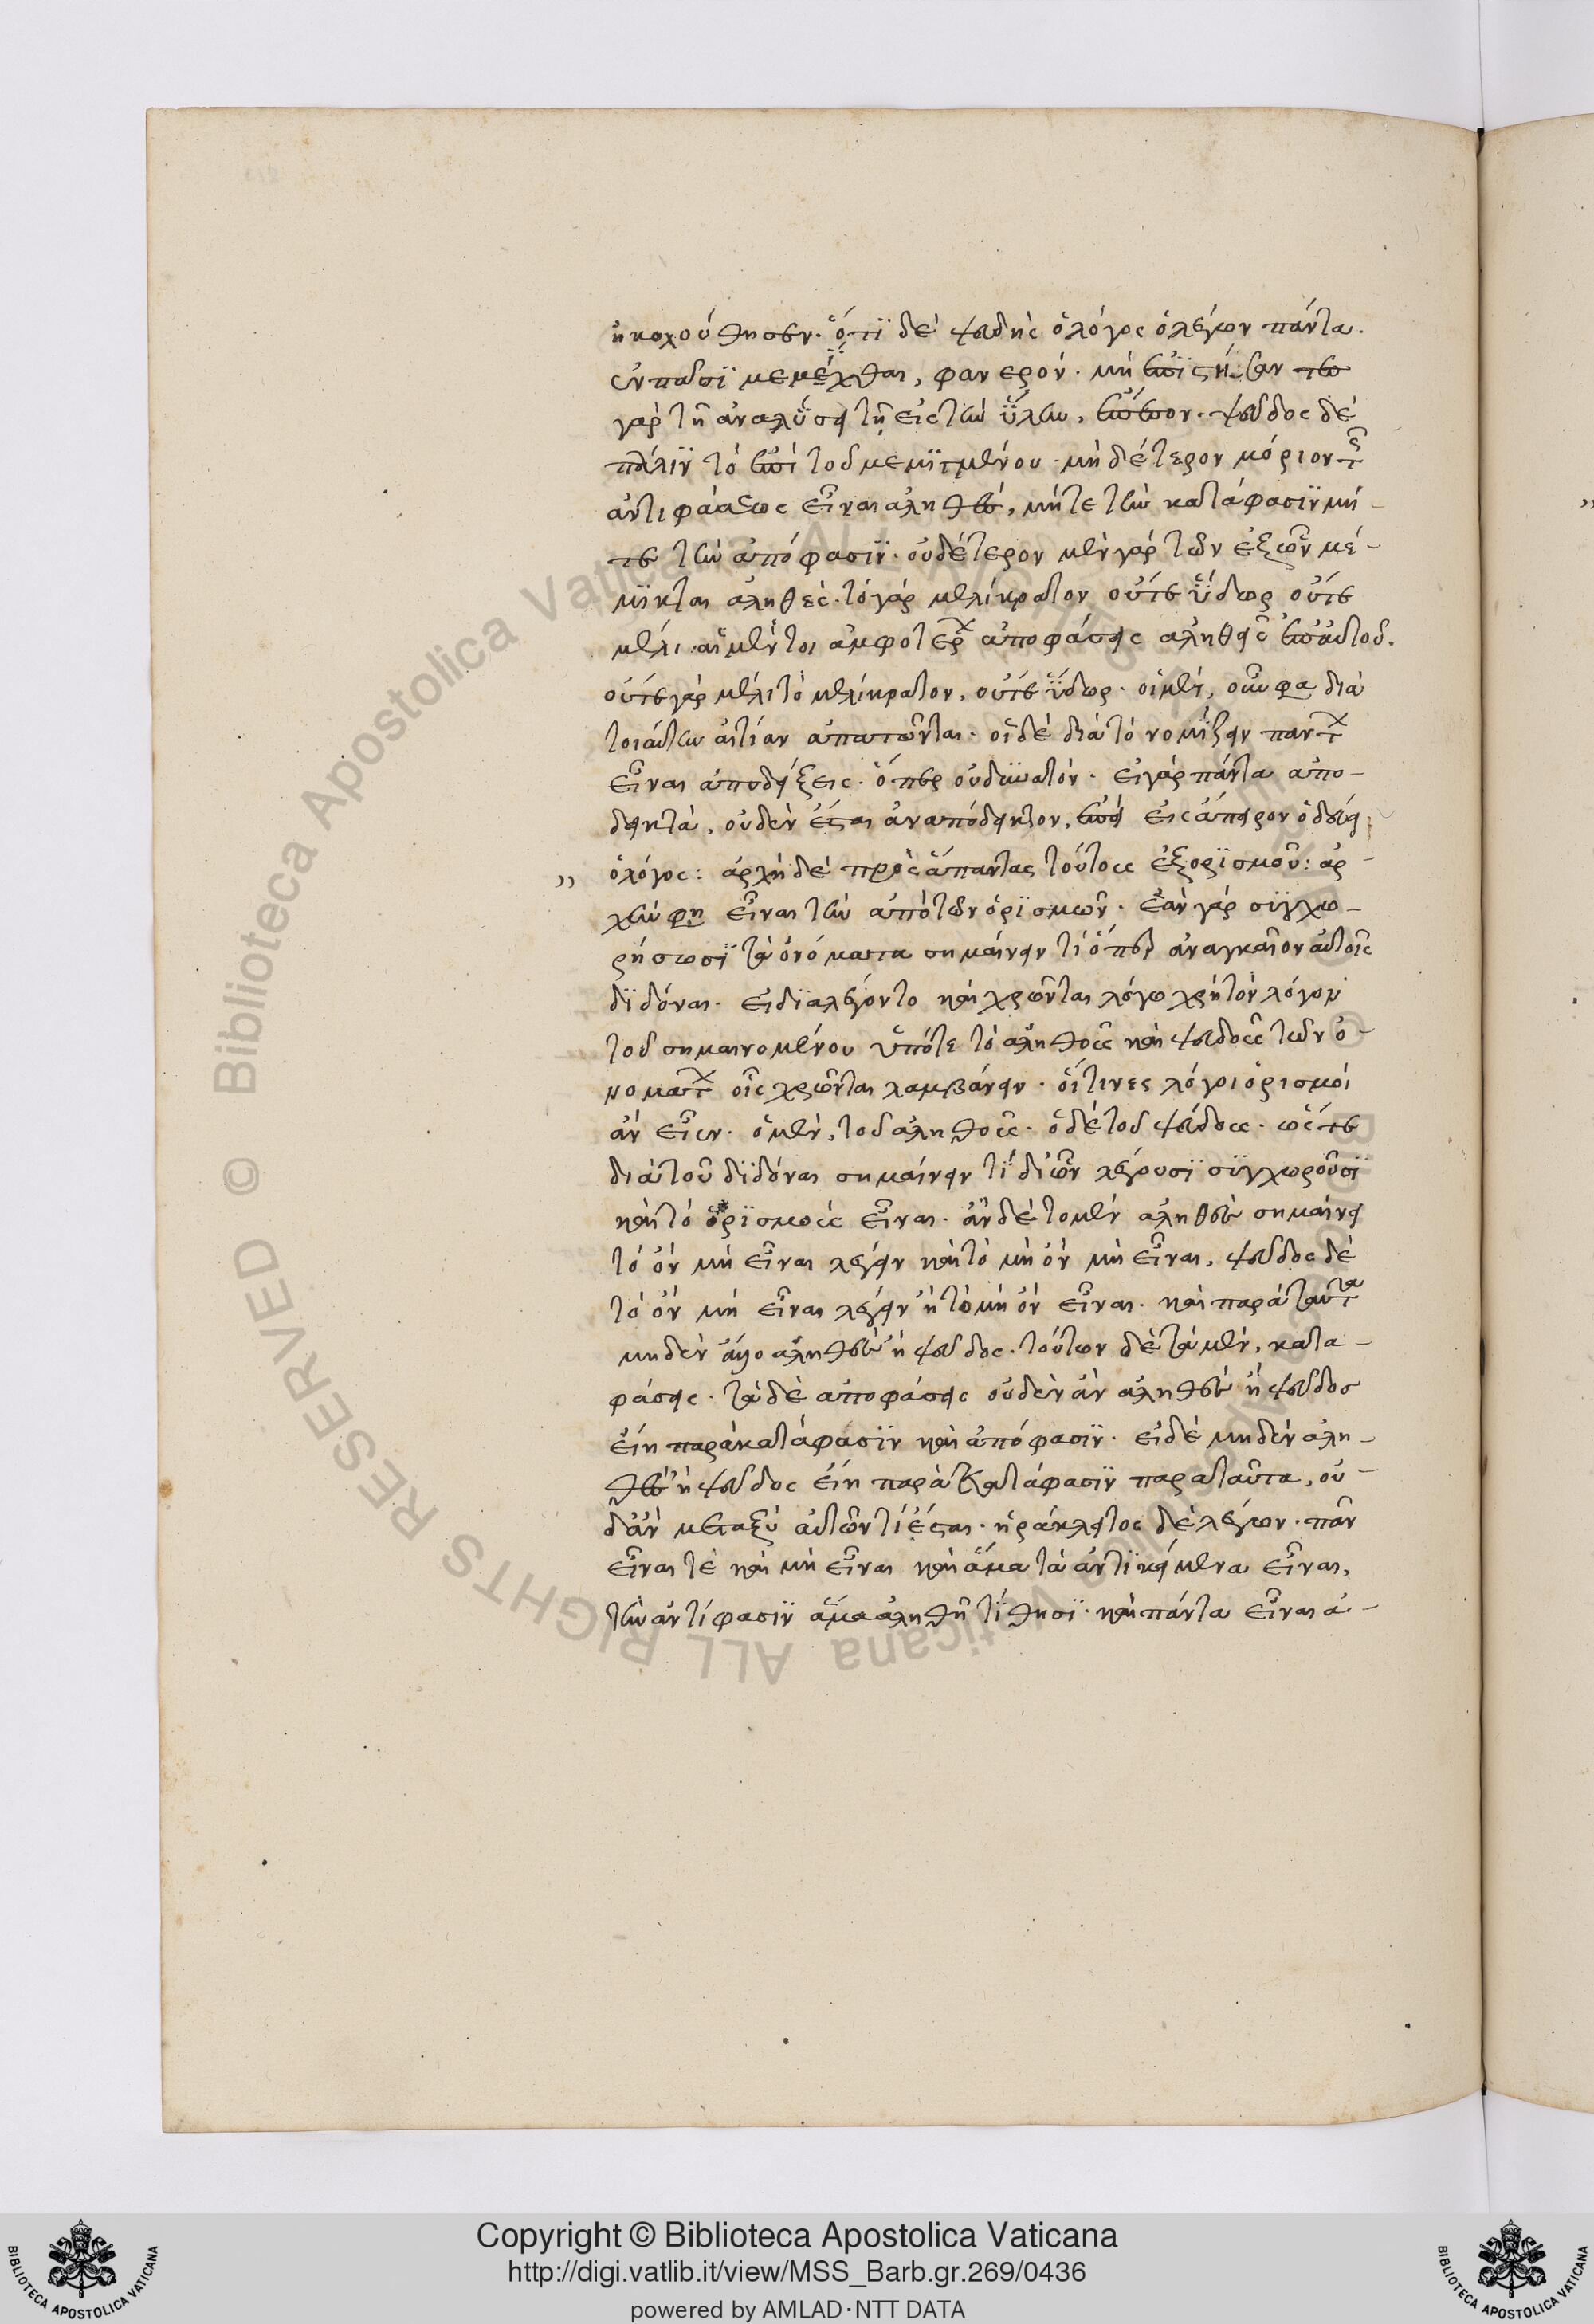 ἠκολούθησεν. ὅτι δὲ ψευδὴς ὁ λόγος ὁ λέγων πάντα
ἐν πᾶσι μεμίχθαι, φανερόν. μὴ
γὰρ τῇ ἀναλύσει τῇ εἰς τὴν ὕλην, ψεῦδος δὲ
πάλιν τὸ ἐπὶ τοῦ μεμιγμένου μηδέτερον μόριον τῆς
ἀντιφάσεως εἶναι ἀληθὲς, μήτε τὴν κατάφασιν μή-
τε τὴν ἀπόφασιν. οὐδέτερον μὲν γὰρ τῶν ἐξ ὧν μέ-
μικται ἀληθές. τὸ γὰρ μελίκρατον οὔτε ὕδωρ οὔτε
μέλι. αἱ μέντοι ἀμφοτέρων ἀποφάσεις ἀληθεῖς ἐπ' αὐτοῦ.
οὔτε γὰρ μέλι τὸ μελίκρατον, οὔτε ὕδωρ. οἱ μὲν, οὖν φα διὰ
τοιαύτην αἰτίαν ἀπατῶνται. οἱ δὲ διὰ τὸ νομίζειν πάντων
εἶναι ἀποδείξεις. ὅπερ οὐ δυνατόν. εἰ γὰρ πάντα ἀπο-
δεικτὰ, οὐδὲν ἔσται ἀναπόδεικτον, ἐπεὶ εἰς ἄπειρον ὁδεύει
ὁ λόγος: ἀρχὴ δὲ πρὸς ἅπαντας τούτους ἐξ ὁρισμοῦ: ἀρ-
χήν φη εἶναι τὴν ἀπὸ τῶν ὁρισμῶν. ἐὰν γὰρ συγχω-
ρήσωσι τὰ ὀνόματα σημαίνειν τί ὅπερ ἀναγκαῖον αὐτοῖς
διδόναι. εἰ διαλέγοντο καὶ χρῶνται λόγω χρὴ τὸν λόγον
τοῦ σημαινομένου ὑπό τε τὸ ἀληθοῦς καὶ ψεύδους τῶν ὀ-
νομάτων οἷς χρῶνται λαμβάνειν. οἵτινες λόγοι ὁρισμοὶ
ἂν εἶεν. ὁ μὲν, τοῦ ἀληθοῦς. ὁ δὲ τοῦ ψεύδους. ὥστε
διὰ τοῦ διδόναι σημαίνειν τί δι' ὧν λέγουσι συγχωροῦσι
καὶ τὸ ὁρισμοὺς εἶναι. ἂν δὲ τὸ μὲν ἀληθὲς σημαίνει
τὸ ὂν μὴ εἶναι λέγειν καὶ τὸ μὴ ὂν μὴ εἶναι, ψεῦδος δὲ
τὸ ὂν μὴ εἶναι λέγειν ἢ τὸ μὴ ὂν εἶναι. καὶ παρὰ ταῦτα
μηδὲν ἄλλο ἀληθὲς ἢ ψεῦδος. τούτων δὲ τὰ μὲν, κατα-
φάσεις. τὰ δὲ ἀποφάσεις οὐδὲν ἂν ἀληθὲς ἢ ψεῦδος
εἴη παρὰ κατάφασιν καὶ ἀπόφασιν. εἰ δὲ μηδὲν ἀλη-
θὲς ἢ ψεῦδος εἴη παρὰ κατάφασιν παρα ταῦτα, οὐ-
δ' ἂν μεταξὺ αὐτῶν τί ἔσται. ἡράκλειτος δὲ λέγων. πᾶν
εἶναι τὲ καὶ μὴ εἶναι καὶ ἅμα τὰ ἀντικείμενα εἶναι,
τὴν ἀντίφασιν ἅμα ἀληθῆ τίθησι. καὶ πάντα εἶναι ἀ-
Copyright © Biblioteca Apostolica Vaticana
http://digi.vatlib.it/view/MSS_Barb.gr.269/0436
powered by AMLAD·NTT DATA
BIBLIOTECA APOSTOLICA VATICANA
BIBLIOTECA APOSTOLICA VATICANA
© Biblioteca Apostolica Vaticana ALL RIGHTS RESERVED